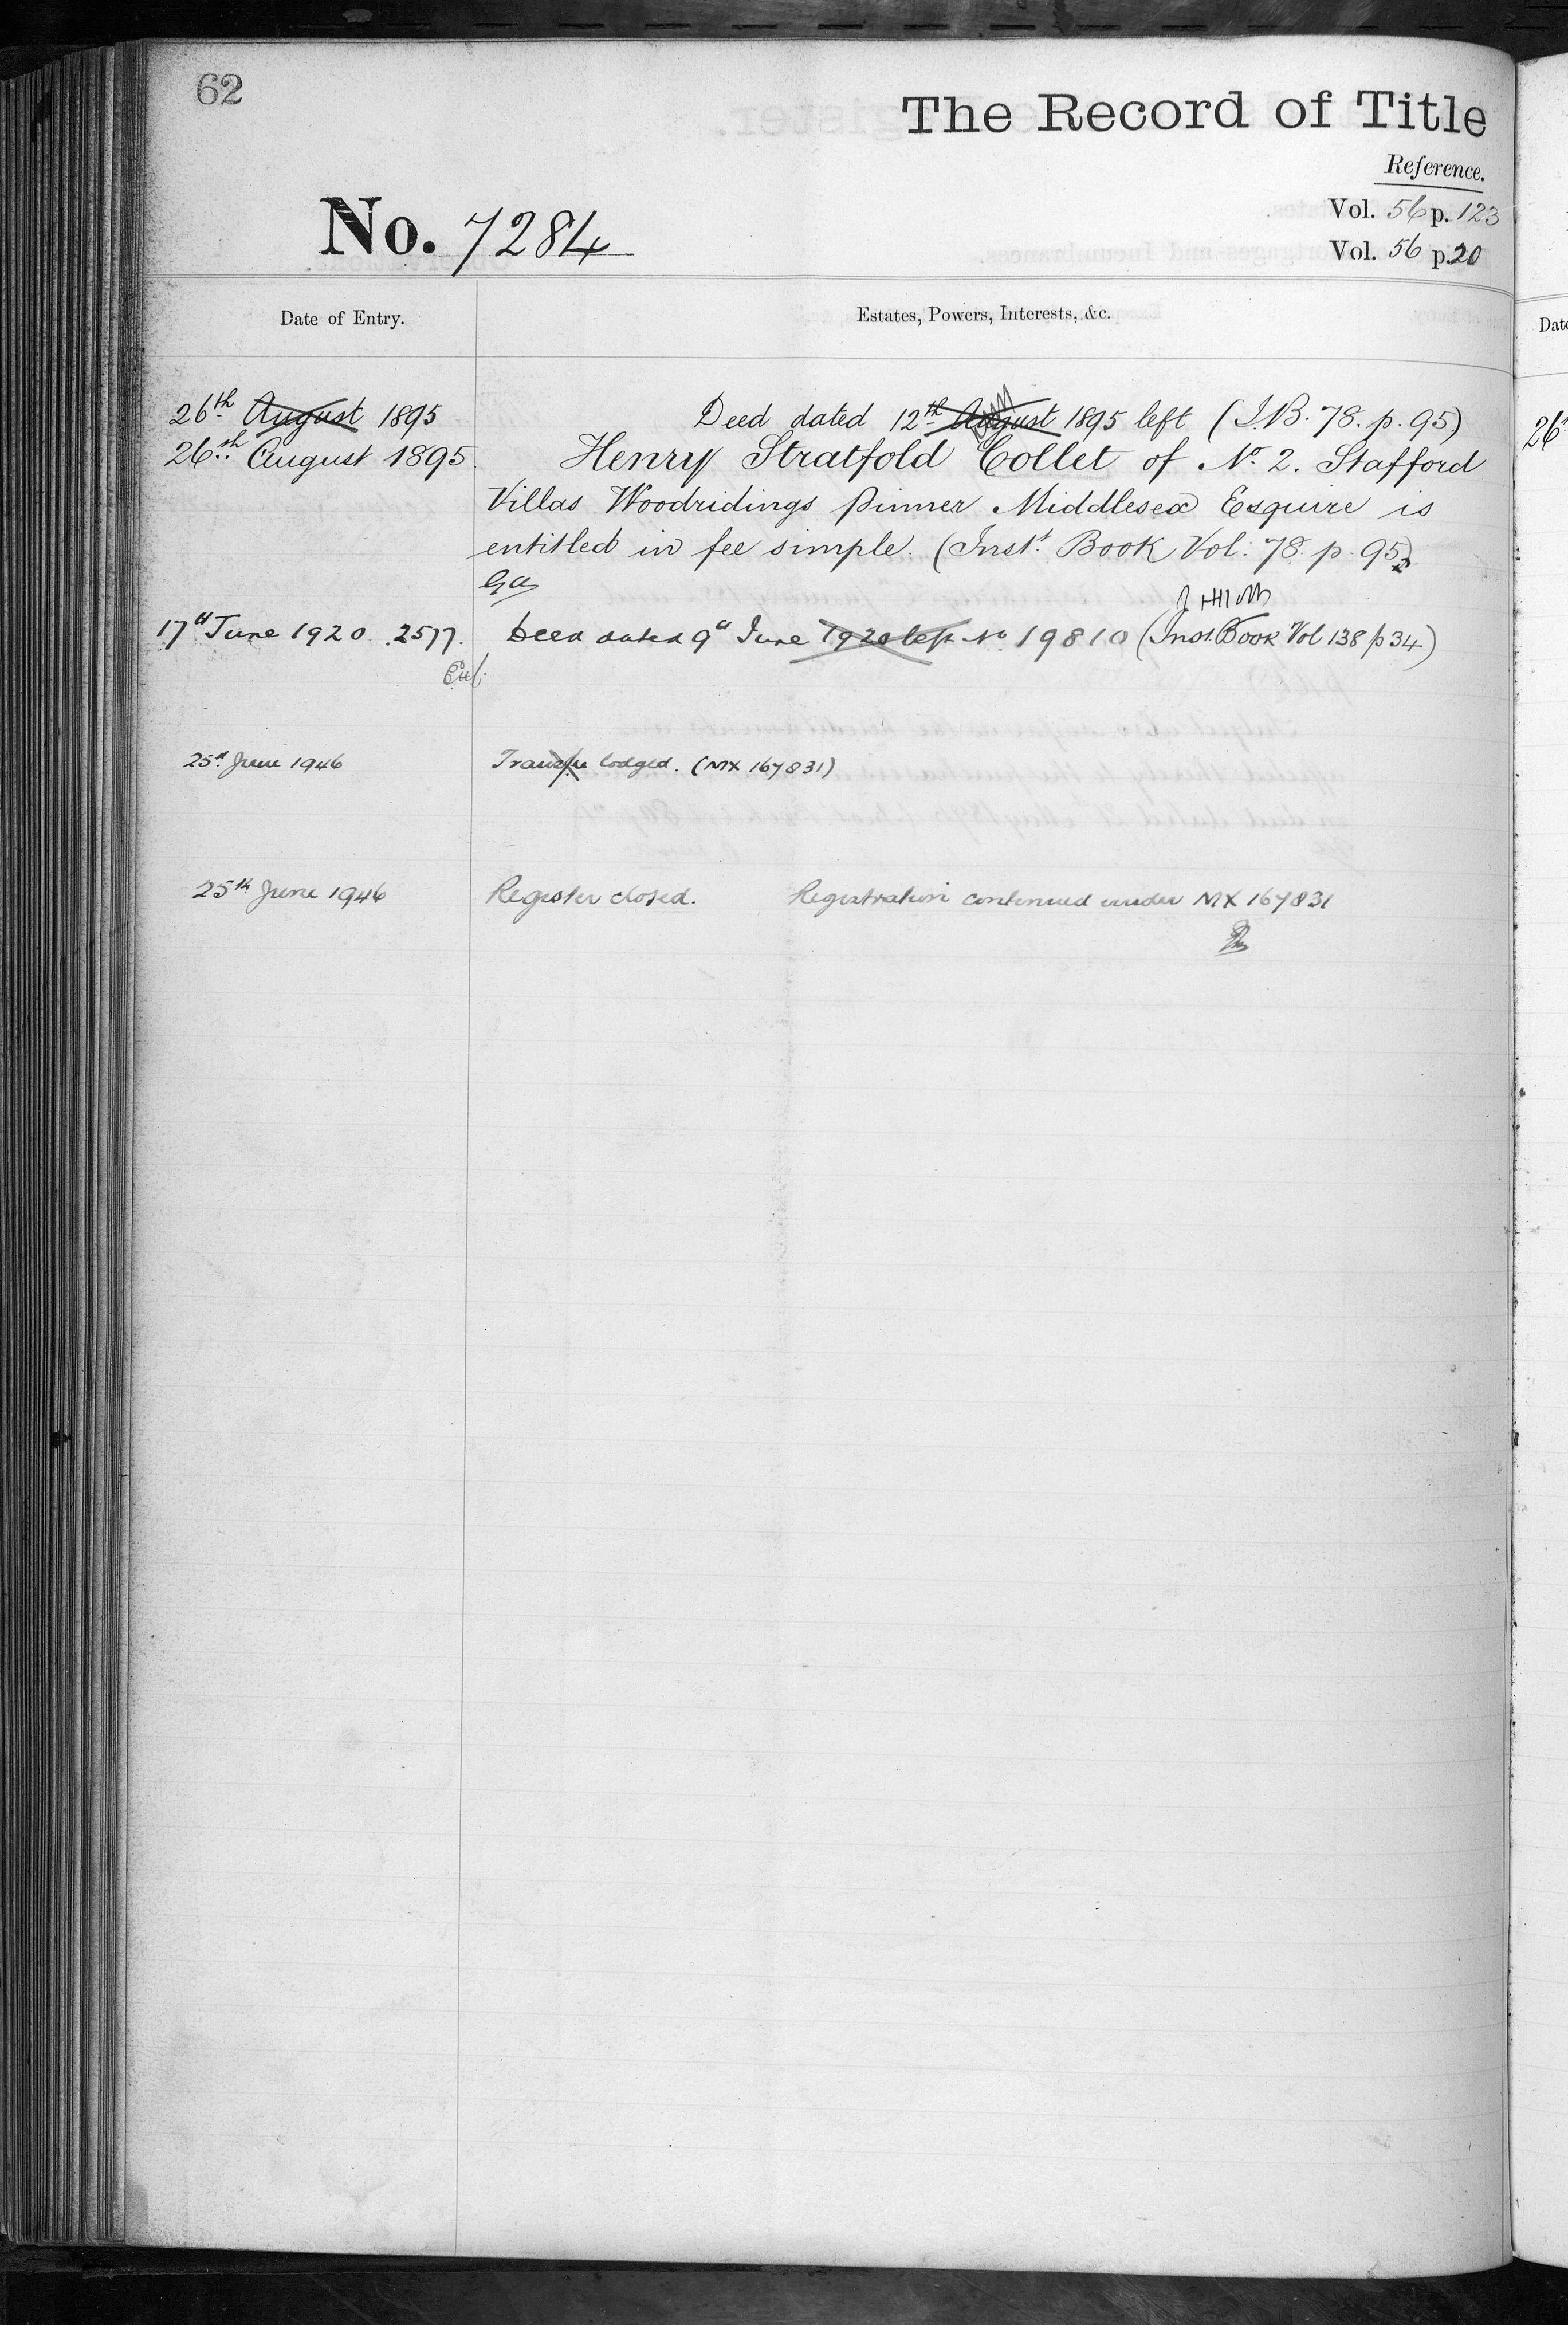 62
The Record of Title
Reference.
Vol. 56 p. 123
No. 7284
Vol. 56 p. 20
Date of Entry.
Estates, Powers, Interests, &c.
26th August 1895 Deed dated 12th August 1895 left (I.B. 78. p. 95)
26th August 1895 Henry Stratfold Collet of No. 2. Stafford
Villas Woodridings Pinner Middlesex Esquire is
entitled in fee simple. (Inst. Book Vol. 78. p. 95)
17th June 1920 2577. Deed dated 9th June 1920 left No 19810 (Inst. Book Vol 138 p 34)
25th June 1946 Transfer lodged. (MX 167831)
25th June 1946 Register closed. Registration continued under MX 167831
Date
26th